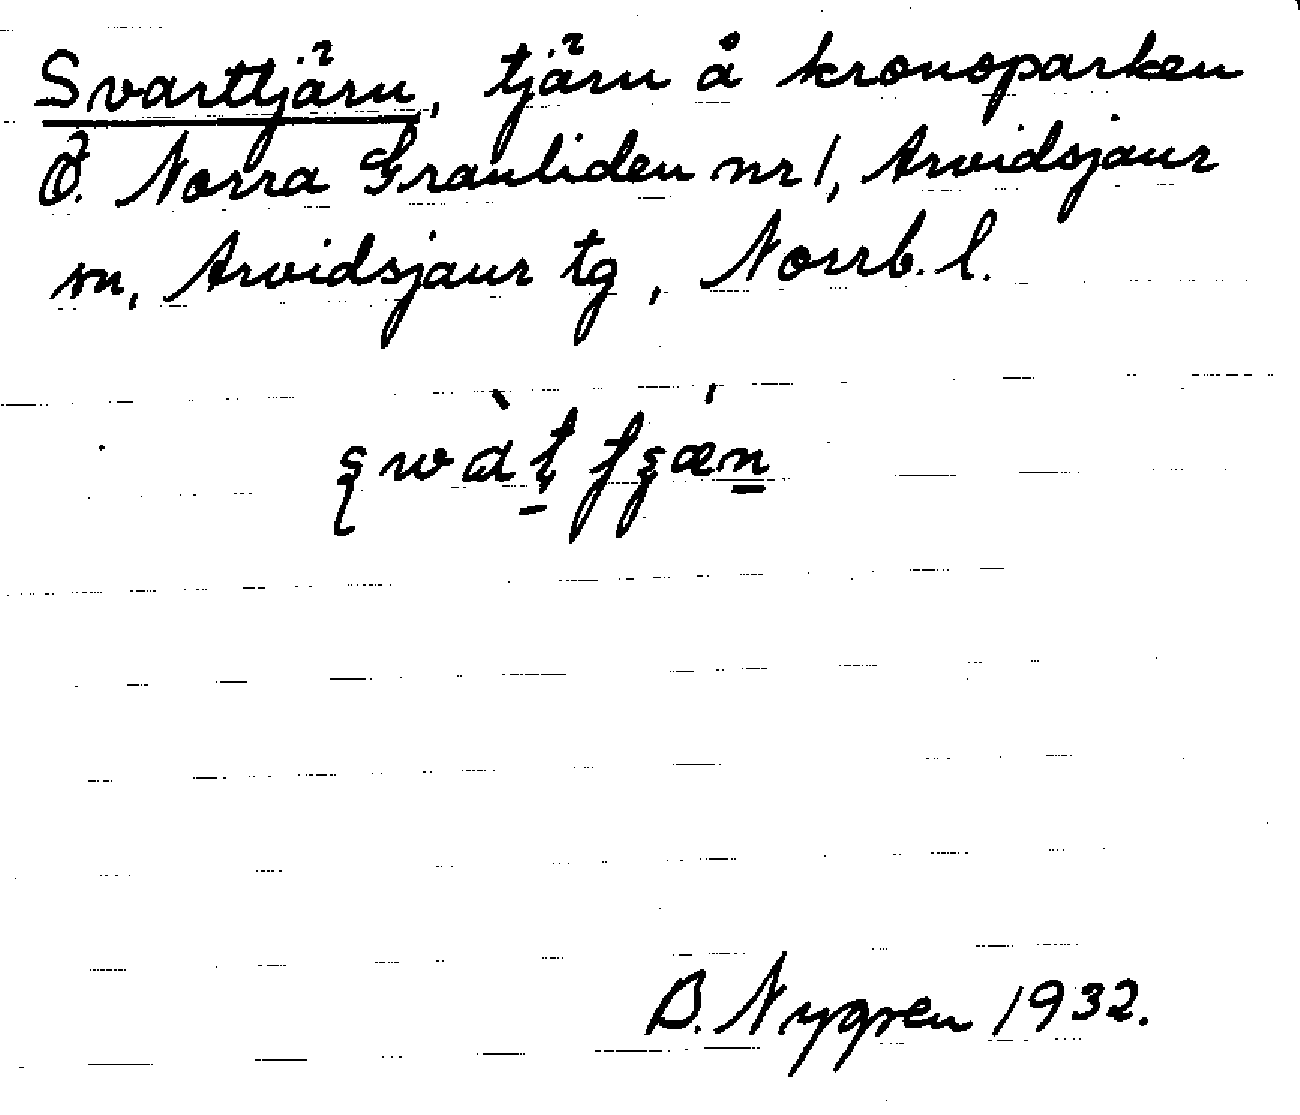 Svarttjärn, tjärn å kronoparken
Ö. Norra Granliden nr 1, Arvidsjaur
sn, Arvidsjaur tg, Norrb. l.
B. Nygren 1932.